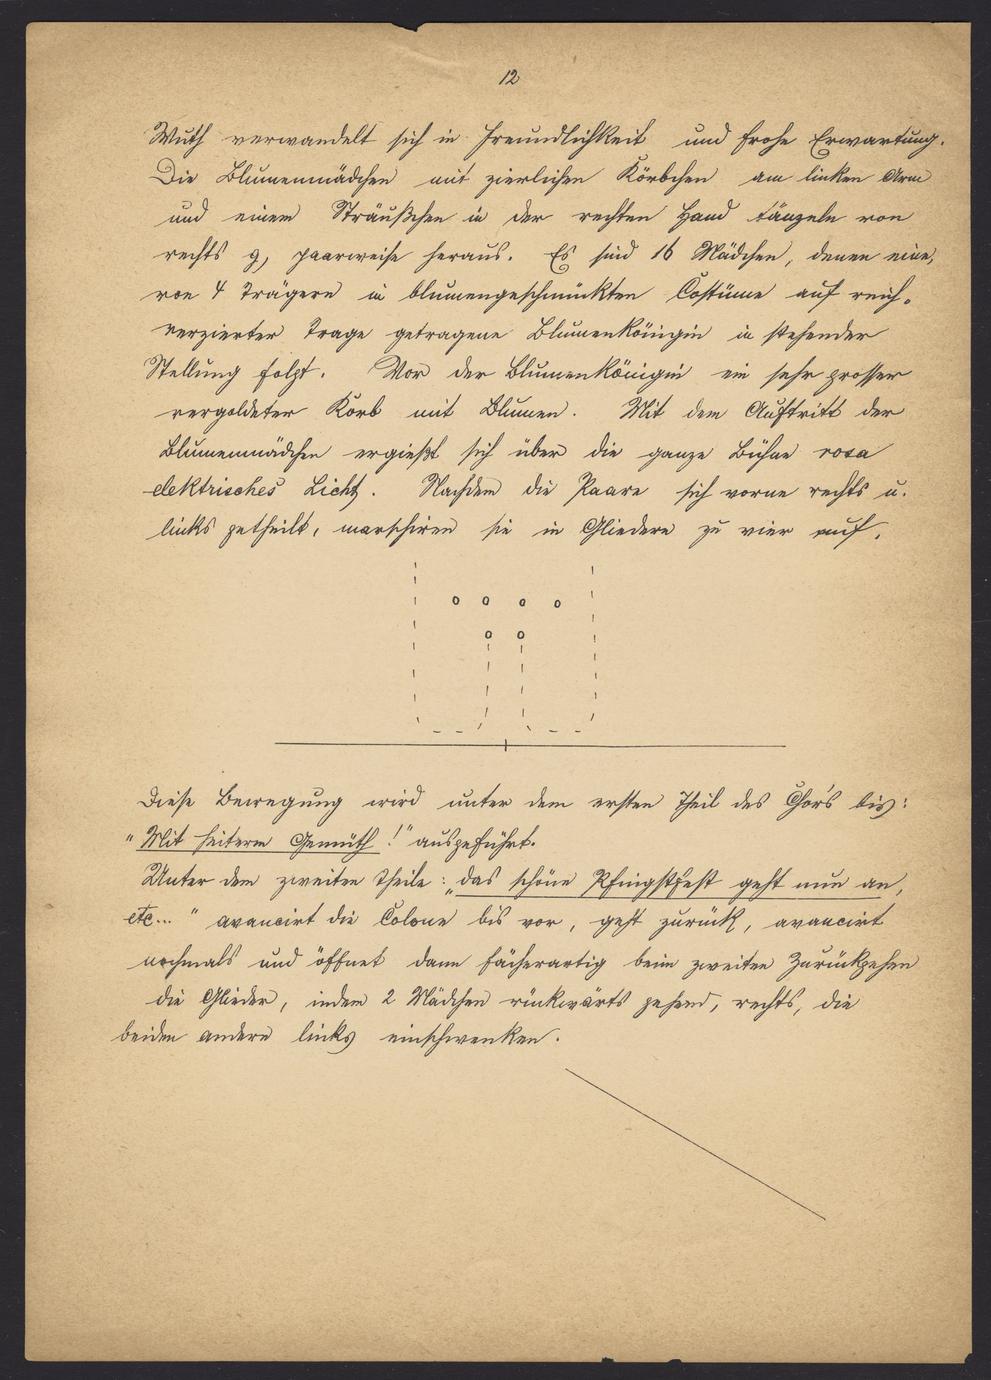 12
Wuth verwandelt sich in Freundlichkeit und frohe Erwartung.
Die Blumenmädchen mit zierlichen Körbchen am linken Arm
und einem Sträußchen in der rechten Hand tänzeln von
rechts 9, paarweise heraus. Es sind 16 Mädchen, denen eine,
von 4 Trägern in blumengeschmückten Costüme auf reich-
verzierter Trage getragene Blumenkönigin in stehender
Stellung folgt. Vor der Blumenkönigin ein sehr grosser
vergoldeter Korb mit Blumen. Mit dem Auftritt der
Blumenmädchen ergießt sich über die ganze Bühne rosa
elektrisches Licht. Nachdem die Paare sich vorne rechts u.
links getheilt, marschiren sie in Gliedern zu vier auf.
Diese Bewegung wird unter dem ersten Theil des Chors bis:
"Mit heiterm Gemüth!" ausgeführt.
Unter dem zweiten Theile: "das schöne Pfingstfest geht nun an,
etc..." avancirt die Colone bis vor, geht zurück, avancirt
nochmals und öffnet dann fächerartig beim zweiten Zurückgehen
die Glieder, indem 2 Mädchen rückwärts gehend, rechts, die
beiden andern links einschwenken.